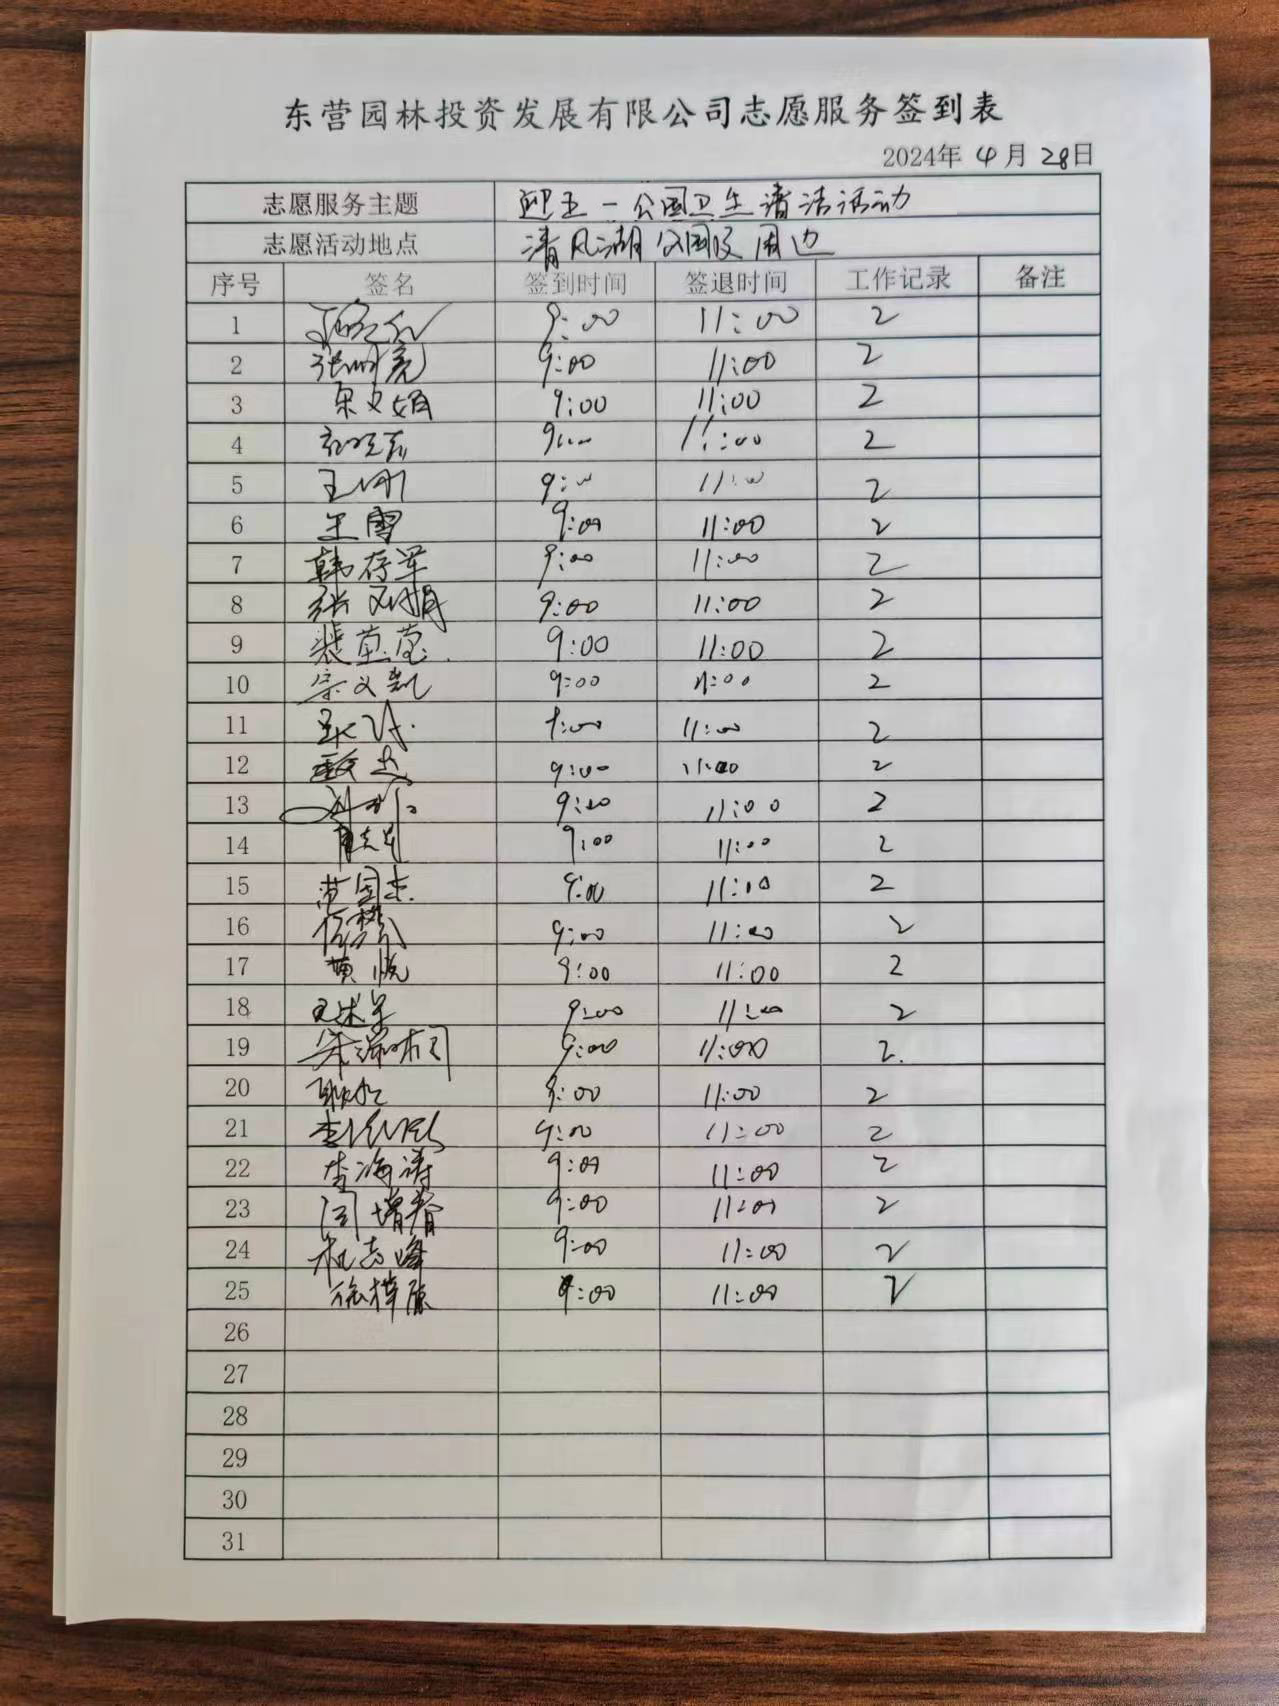 东营园林投资发展有限公司志愿服务签到表
2024年 4 月 28日
志愿服务主题 迎五一公园卫生清洁活动
志愿活动地点 清风湖公园及周边
序号 签名 签到时间 签退时间 工作记录 备注
1 9:00 11:00 2
2 张明亮 9:00 11:00 2
3 宋文娟 9:00 11:00 2
4 9:00 11:00 2
5 王刚 9:00 11:00 2
6 王雪 9:00 11:00 2
7 韩存军 9:00 11:00 2
8 张文娟 9:00 11:00 2
9 9:00 11:00 2
10 宗义凯 9:00 11:00 2
11 9:00 11:00 2
12 9:00 11:00 2
13 9:00 11:00 2
14 9:00 11:00 2
15 9:00 11:00 2
16 9:00 11:00 2
17 黄悦 9:00 11:00 2
18 9:00 11:00 2
19 9:00 11:00 2
20 9:00 11:00 2
21 9:00 11:00 2
22 李海涛 9:00 11:00 2
23 闫增春 9:00 11:00 2
24 杜志峰 9:00 11:00 2
25 9:00 11:00 2
26
27
28
29
30
31